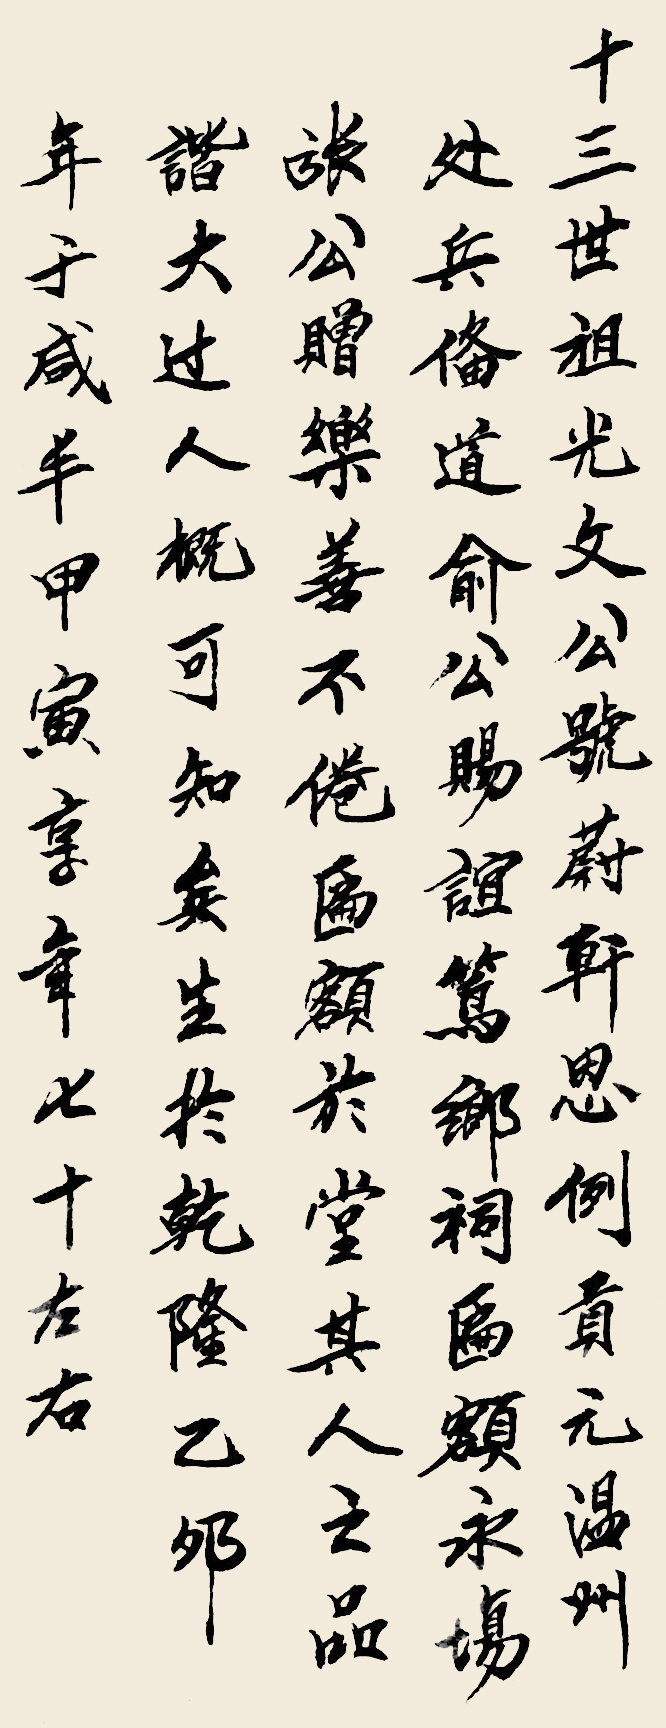 十三世祖光文公號蔚軒恩例貢元温州
处兵俻道俞公賜誼篤鄉祠匾額永塲
張公贈樂善不倦匾額於堂其人之品
諧大过人概可知矣生於乾隆乙卯
年于咸丰甲寅享年七十左右